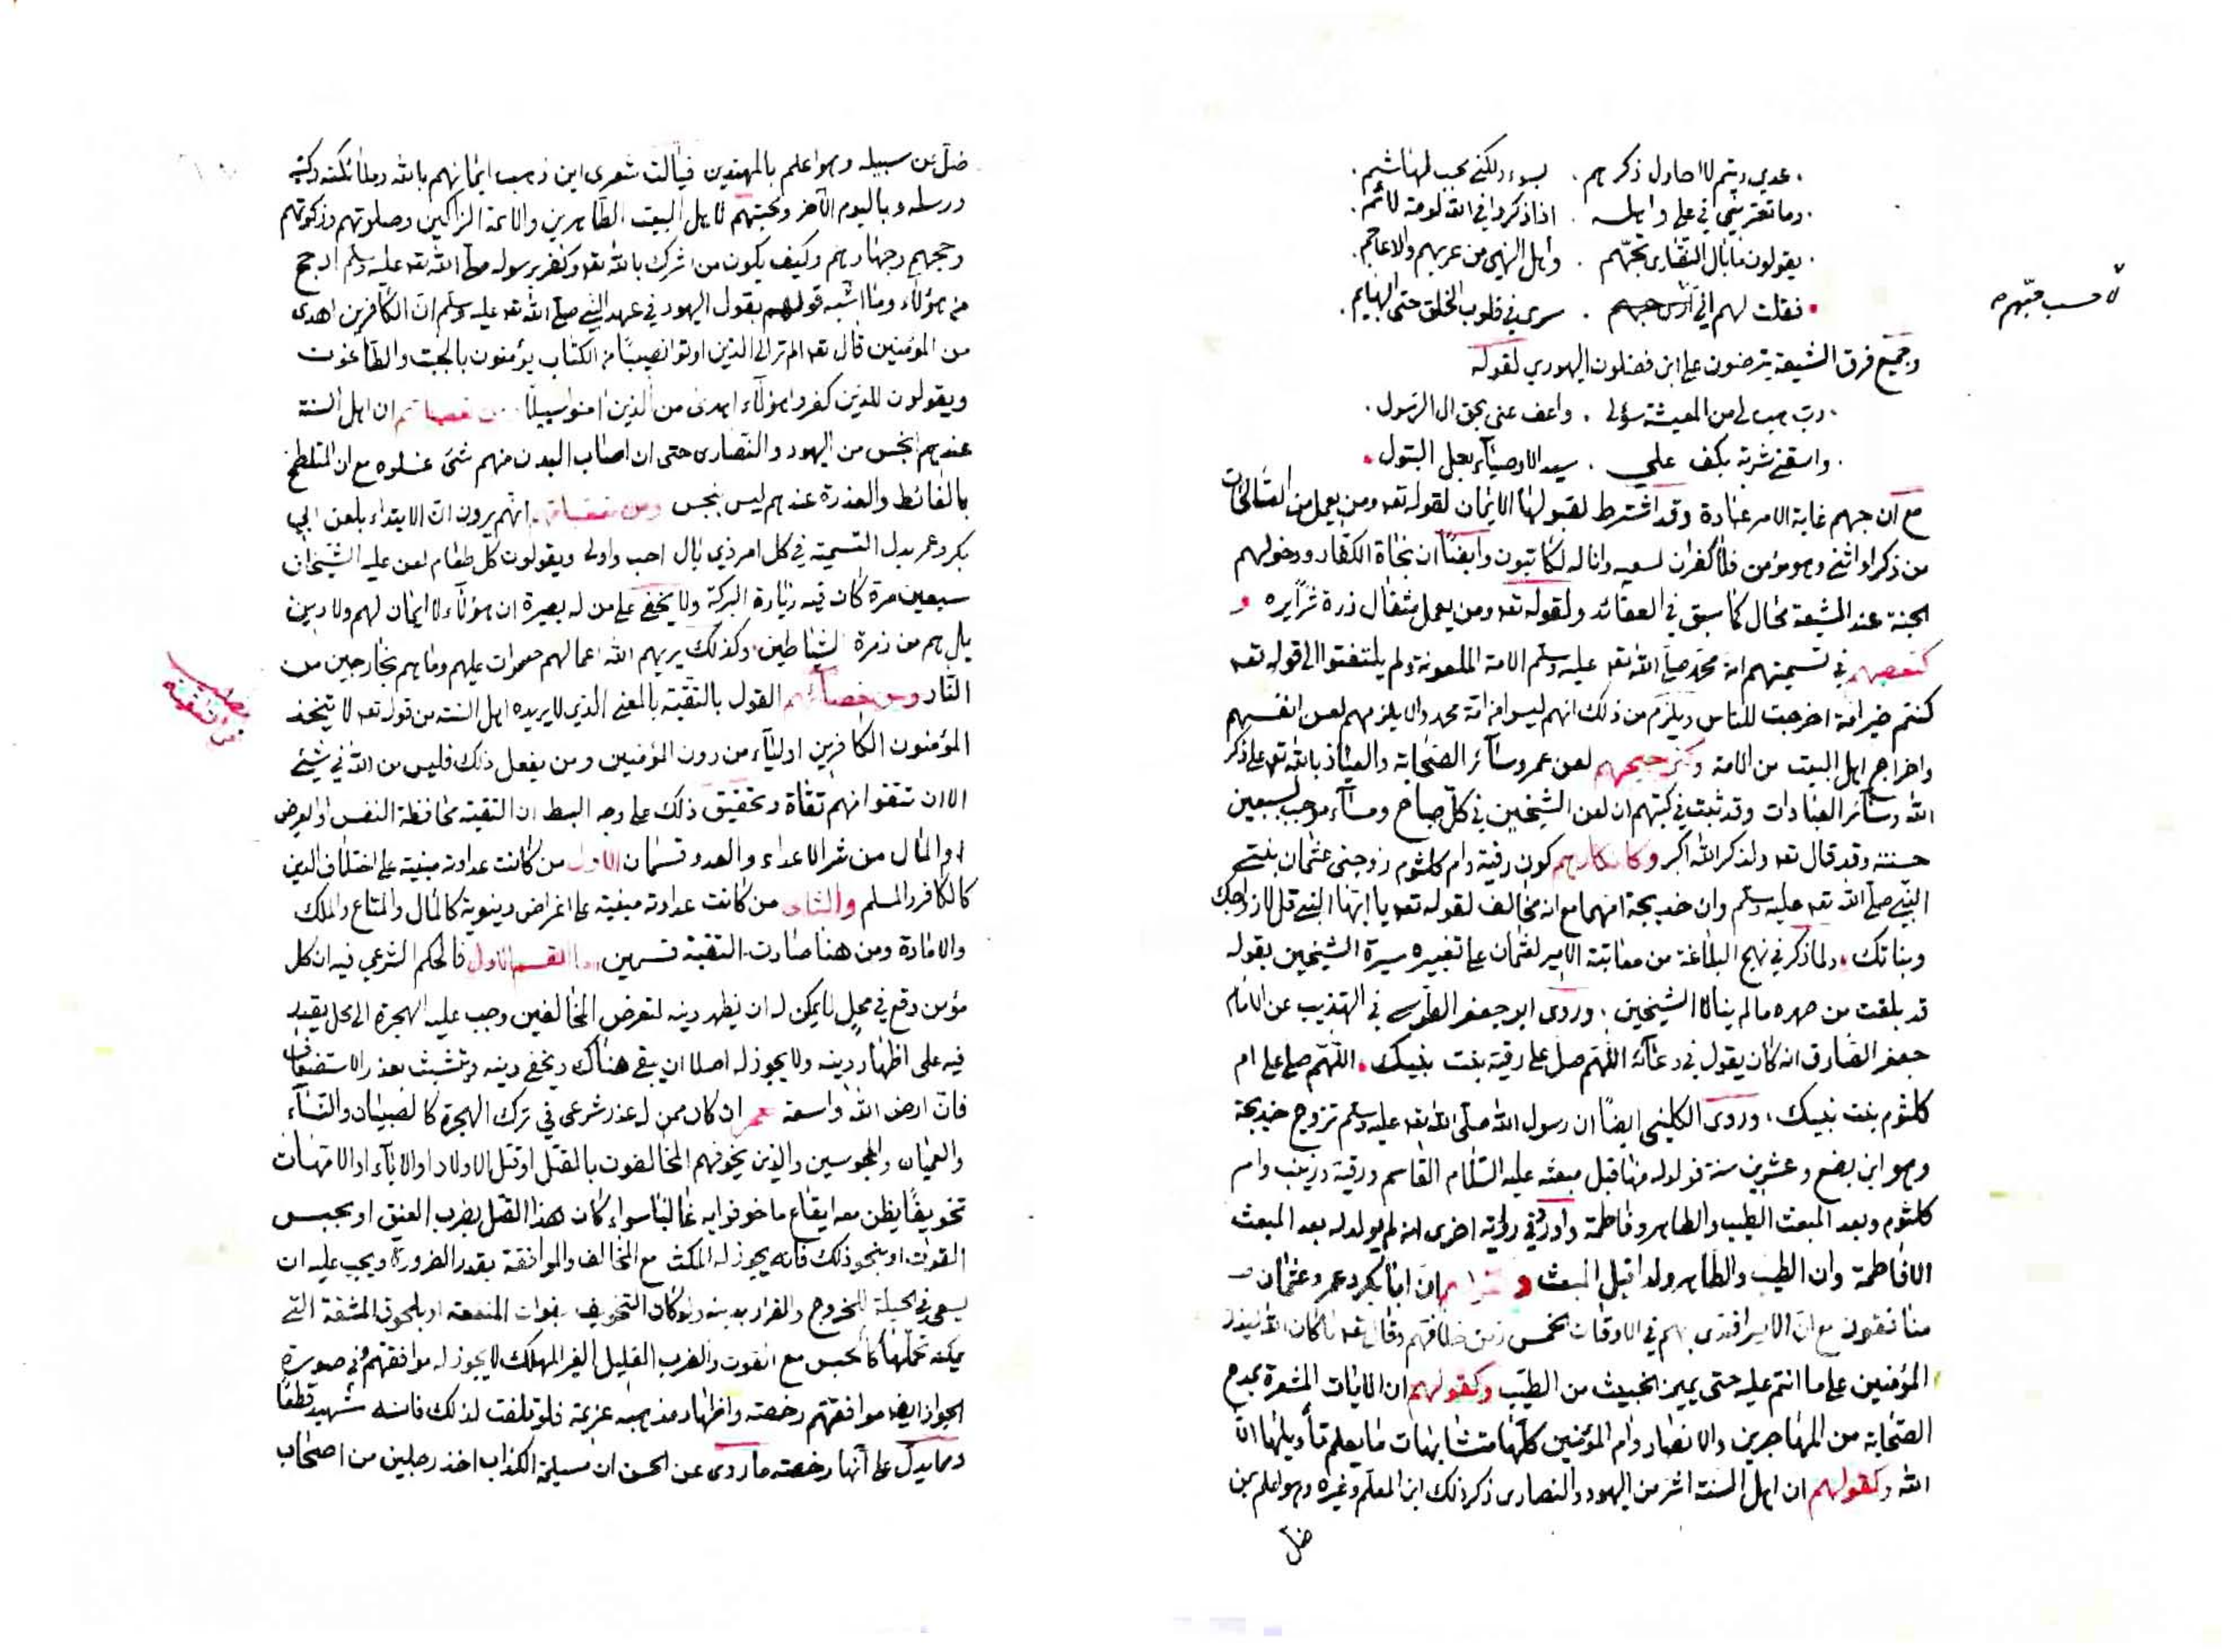 عدي وتيم لا احاول ذكرهم . بسوء ولكني محب لهاشم
وما تعتريني في علي واهله . اذا ذكروا في الله لومة لائم
يقولون ما بال النصارى تحبهم . واهل النهى من عربهم والاعاجم
فقلت لهم اني . سرى في قلوب الخلق حتى البهايم
لاحسب حبهم
وجميع فرق الشيعة يترضون على ابن فضلون اليهودي لقوله
رب هب لي من المعيشة سؤلي . واعف عني بحق ال الرسول
واسقني شربة بكف علي . سيد الاوصياء بعل البتول
مع ان حبهم غاية الامر عبادة وقد اشترط لقبولها الايمان لقوله تعه ومن يعمل من الصالحات
من ذكر او انثى وهو مؤمن فلا كفران لسعيه وانا له لكاتبون وايضا ان نجاة الكفار ودخولهم
الجنة عند الشيعة محال كما سبق في العقائد ولقوله تعه ومن يعمل مثقال ذرة شرا يره و
كتعصبهم في تسميتهم امة محمد صلى الله تعه عليه وسلم الامة الملعونة ولم يلتفتوا الى قوله تعه
كنتم خير امة اخرجت للناس ويلزم من ذلك انهم ليسوا من امة محمد والا يلزمهم لعن انفسهم
واخراج اهل البيت من الامة وكترجيحهم لعن عمر وسائر الصحابة والعياذ بالله تعه على ذكر
الله وسائر العبادات وقد ثبت في كتبهم ان لعن الشيخين في كل صباح ومساء موجب لسبعين
حسنة وقد قال تعه ولذكر الله اكبر وكانكارهم كون رقية وام كلثوم زوجتي عثمان بنتي
النبي صلى الله تعه عليه وسلم وان خديجة امهما مع انه مخالف لقوله تعه يا ايها النبي قل لازواجك
وبناتك . ولما ذكر في نهج البلاغة من معاتبة الامير لعثمان على تغييره سيرة الشيخين بقوله
قد بلغت من صهره ما لم ينالا الشيخين . وروى ابو جعفر الطوسي في التهذيب عن الامام
جعفر الصادق انه كان يقول في دعائه اللهم صل على رقية بنت نبيك . اللهم صل على ام
كلثوم بنت نبيك . وروى الكليني ايضا ان رسول الله صلى الله تعه عليه وسلم تزوج خديجة
وهو ابن بضع وعشرين سنة فولد له منها قبل مبعثه عليه السلام القاسم ورقية وزينب وام
كلثوم وبعد المبعث الطيب والطاهر وفاطمة واورد في رواية اخرى انه لم يولد له بعد المبعث
الا فاطمة وان الطيب والطاهر ولدا قبل المبعث ان ابا بكر وعمر وعثمان
منافقون مع ان الامير اقتدى بهم في الاوقات الخمس زمن خلافتهم وقال تعه ما كان الله ليذر
المؤمنين على ما انتم عليه حتى يميز الخبيث من الطيب وكقولهم ان الايات المشعرة بمدح
الصحابة من المهاجرين والانصار وام المؤمنين كلها متشابهات ما يعلم تأويلها الا
الله وكقولهم ان اهل السنة اشر من اليهود والنصارى ذكر ذلك ابن المعلم وغيره وهو اعلم بمن
ضل
ضل عن سبيله وهو اعلم بالمهتدين فياليت شعري اين ذهب ايمانهم بالله وملائكته وكتبه
ورسله وباليوم الآخر ومحبتهم لاهل البيت الطاهرين والائمة الزاكين وصلوتهم وزكوتهم
وحجهم وجهادهم وكيف يكون من اشرك بالله تعه وكفر برسوله صلى الله تعه عليه وسلم ارجح
من هؤلاء وما اشبه قولهم بقول اليهود في عهد النبي صلى الله تعه عليه وسلم ان الكافرين اهدى
من المؤمنين قال تعه الم تر الى الذين اوتوا نصيبا من الكتاب يؤمنون بالجبت والطاغوت
ويقولون للذين كفروا هؤلاء اهدى من الذين امنوا سبيلا ان اهل السنة
عندهم انجس من اليهود والنصارى حتى ان اصاب البدن منهم شئ غسلوه مع ان المتلطخ
بالغائط والعذرة عندهم ليس بنجس ومن انهم يرون ان الابتداء بلعن ابي
بكر وعمر بدل التسمية في كل امر ذي بال احب واولى ويقولون كل طعام لعن عليه الشيخان
سبعين مرة كان فيه زيادة البركة ولا يخفى على من له بصيرة ان هؤلاء لا ايمان لهم ولا دين
بل هم من زمرة الشياطين وكذلك يريهم الله اعمالهم حسرات عليهم وما هم بخارجين من
النار ومن القول بالتقية بالمعنى الذي لا يريده اهل السنة من قوله تعه لا يتخذ
المؤمنون الكافرين اولياء من دون المؤمنين ومن يفعل ذلك فليس من الله في شيئ
الا ان تتقوا منهم تقاة وتحقيق ذلك على وجه البسط ان التقية محافظة النفس او العرض
او المال من شر الاعداء والعدو قسمان الاول من كانت عداوته مبنية على اختلاف الدين
كالكافر والمسلم والثاني من كانت عداوته مبنية على اغراض دنيوية كالمال والمتاع والملك
والامارة ومن هنا صارت التقية قسمين اما القسم الاول فالحكم الشرعي فيه ان كل
مؤمن وقع في محل لا يمكن له ان يظهر دينه لتعرض المخالفين وجب عليه الهجرة الى محل يقدر
فيه على اظهار دينه ولا يجوز له اصلا ان يبقى هناك ويخفي دينه ويتشبث بعذر الاستضعاف
فان ارض الله واسعة نعم ان كان ممن له عذر شرعي في ترك الهجرة كالصبيان والنساء
والعميان والمحبوسين والذين يخوفهم المخالفون بالقتل او قتل الاولاد او الاباء او الامهات
تخويفا يظن معه ايقاع ما خوفوا به غالبا سواء كان هذا القتل بضرب العنق او بحبس
القوت او بنحو ذلك فانه يجوز له المكث مع المخالف والموافقة بقدر الضرورة ويجب عليه ان
يسعى في الحيلة للخروج والفرار بدينه ولو كان التخويف بفوات المنفعة او بلحوق المشقة التي
يمكنه تحملها كالحبس مع القوت والضرب القليل الغير المهلك لا يجوز له موافقتهم وفي صورة
الجواز ايضا موافقتهم رخصة واظهار مذهبه عزيمة فلو تلفت لذلك فانه شهيد قطعا
ومما يدل على انها رخصة ما روى عن الحسن ان مسيلمة الكذاب اخذ رجلين من اصحاب